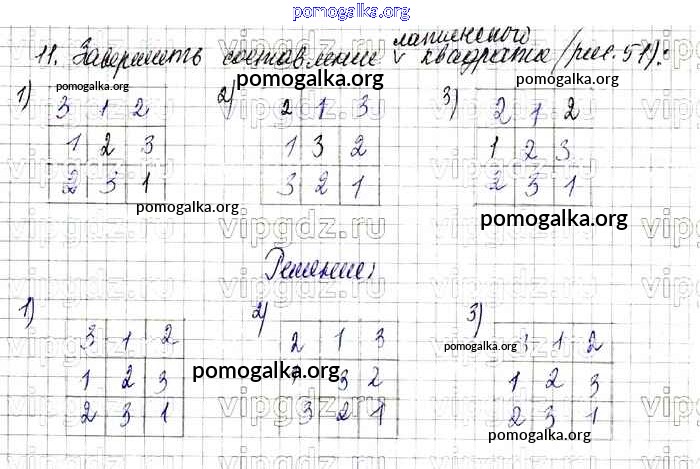 pomogalka.org
11. Завершить составление латинского квадрата (рис. 51):
pomogalka.org pomogalka.org pomogalka.org
1) 2) 3)
3 1 2 2 1 3 2 1 2
1 2 3 1 3 2 1 2 3
2 3 1 3 2 1 2 3 1
pomogalka.org pomogalka.org
vipgdz.ru
Решение:
1) 2) 3)
3 1 2 2 1 3 3 1 2
pomogalka.org
1 2 3 1 3 2 1 2 3
pomogalka.org
2 3 1 3 2 1 2 3 1
pomogalka.org
vipgdz.ru